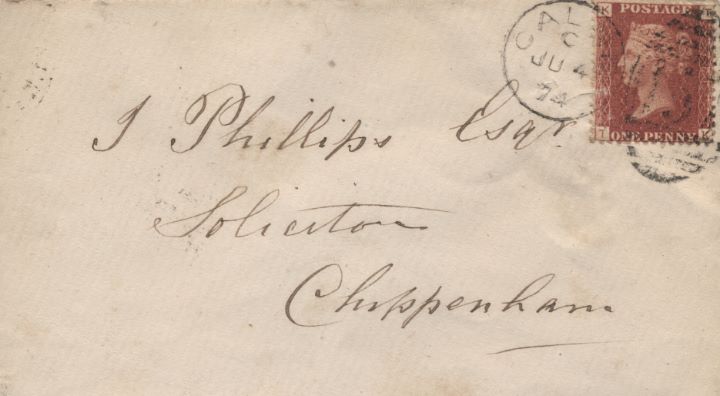 CAL
C
JU 4
74
K POSTAGE
T ONE PENNY K
J Phillips Esqr
Solicitor
Chippenham